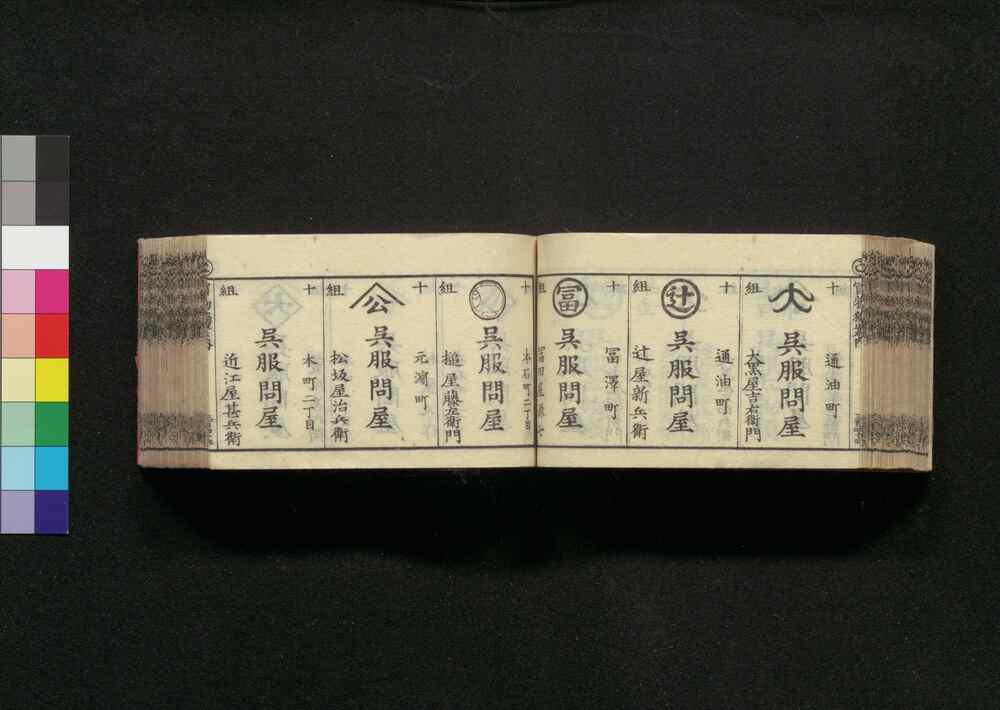 十
大
組
通油町
呉服問屋
大黒屋吉右衛門
十
辻
組
通油町
呉服問屋
辻屋新兵衛
十
冨
組
冨澤町
呉服問屋
十
組
本石町二丁目
呉服問屋
槌屋藤左衛門
十
公
組
元濵町
呉服問屋
松坂屋治兵衛
十
大
組
本町二丁目
呉服問屋
近江屋甚兵衛